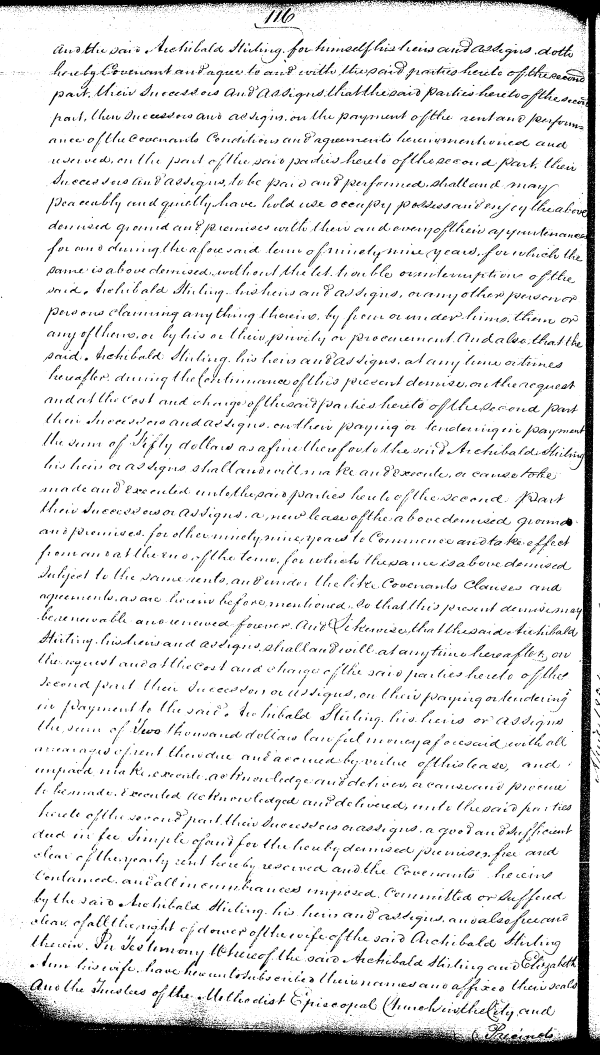 116
and the said Archibald Stirling for himself his heirs and assigns doth
hereby Covenant and agree to and with the said parties hereto of the second
part, their Successors and Assigns, that the said parties hereto of the second
part, their Successors and assigns, on the payment of the rent and perform=
ance of the Covenants Conditions and agreements herein mentioned and
reserved, on the part of the said parties hereto of the second part, their
Successors and assigns, to be paid and performed, shall and may
peaceably and quietly have hold use occupy possess and enjoy the above
demised ground and premises with their and every of their appurtenances
for and during the aforesaid term of ninety nine years, for which the
same is above demised, without the let, trouble or interruption of the
said Archibald Stirling his heirs and assigns, or any other person or
persons claiming anything therein, by from or under him, them or
any of them, or by his or their privity or procurement. And also, that the
said Archibald Stirling his heirs and assigns, at any time or times
hereafter during the Continuance of this present demise, on the request
and at the cost and charge of the said parties hereto of the second part
their Successors and assigns, on their paying or tendering in payment
the sum of Fifty dollars as a fine therefor to the said Archibald Stirling
his heirs or assigns shall and will make and Execute, or cause to be
made and Executed unto the said parties hereto of the second part
their Successors or assigns, a new lease of the above demised ground
and premises, for other ninety nine years to Commence and take effect
from and at the end of the term, for which the same is above demised
Subject to the same rents, and under the like Covenants Clauses and
agreements, as are herein before mentioned, So that this present demise may
be renewable and renewed forever. And Likewise, that the said Archibald
Stirling his heirs and assigns, shall and will, at any time hereafter, on
the request and at the cost and charge of the said parties hereto of the
second part their Successors or assigns, on their paying or tendering
in payment to the said Archibald Stirling his heirs or assigns
the sum of Two thousand dollars lawful money aforesaid, with all
arrearages of rent then due and accrued by virtue of this lease, and
unpaid make, execute, acknowledge and deliver, or cause and procure
to be made, Executed acknowledged and delivered, unto the said parties
hereto of the second part, their Successors or assigns, a good and sufficient
deed in fee simple of and for the hereby demised premises, free and
clear of the yearly rent hereby reserved and the Covenants herein
Contained, and all incumbrances imposed, Committed or Suffered
by the said Archibald Stirling his heirs and assigns, and also free and
clear of all the right of dower of the wife of the said Archibald Stirling
therein. In Testimony Whereof the said Archibald Stirling and Elizabeth
Ann his wife, have hereunto subscribed their names and affixed their seals
And the Trustees of the Methodist Episcopal Church in the City and
Precincts